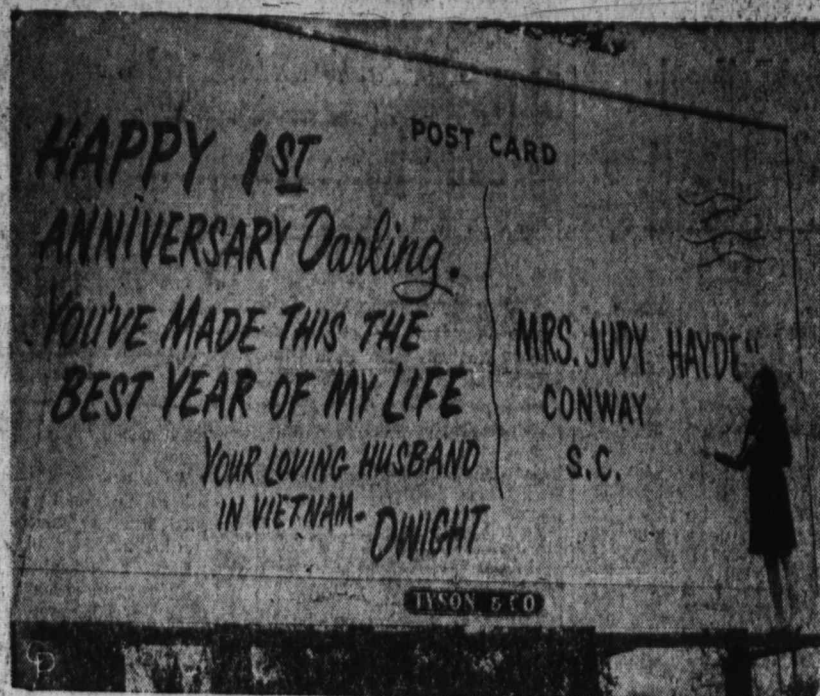 POST CARD
HAPPY 1ST
ANNIVERSARY Darling.
YOU'VE MADE THIS THE
BEST YEAR OF MY LIFE
YOUR LOVING HUSBAND
IN VIETNAM-
DWIGHT
MRS. JUDY
CONWAY
S.C.
TYSON & CO